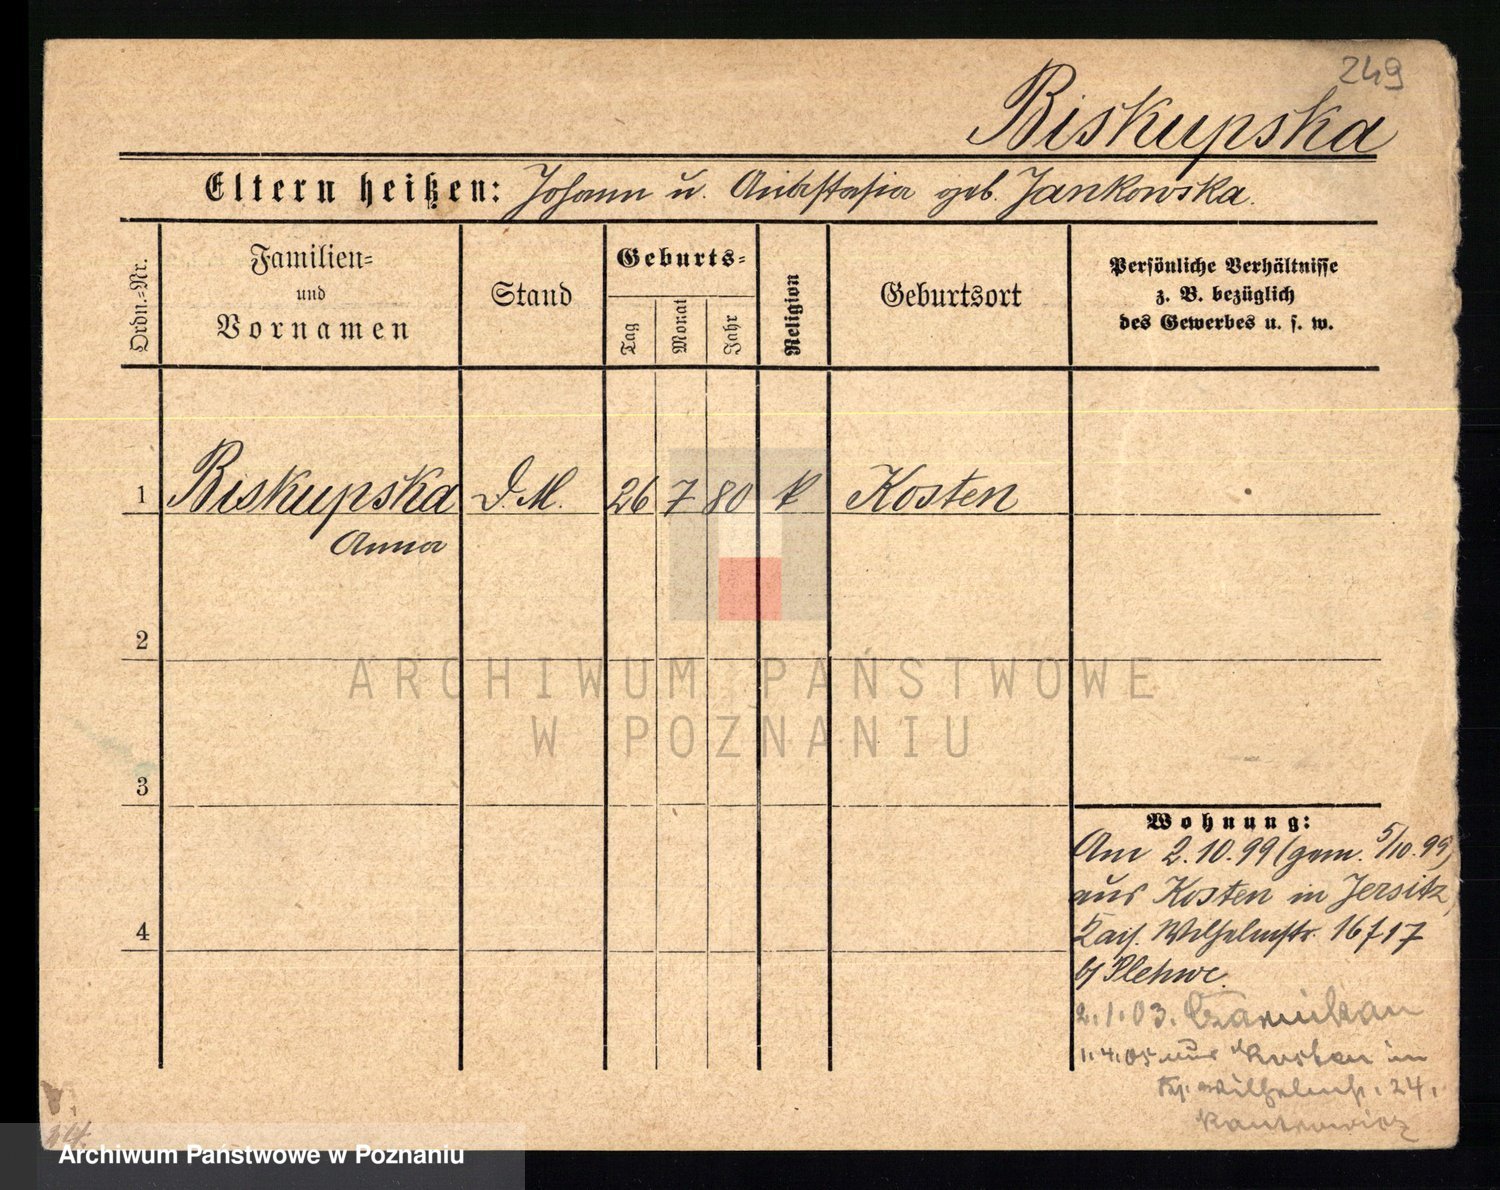 249
Biskupska
Eltern heißen: Johann u. Anastasia geb. Jankowska.
Ordn.=Nr.
Familien=
und
Vornamen
Stand
Geburts=
Tag
Monat
Jahr
Religion
Geburtsort
Persönliche Verhältnisse
z. B. bezüglich
des Gewerbes u. s. w.
1 Biskupska D.M. 26 7 80 k Kosten
Anna
2
ARCHIWUM PAŃSTWOWE
W POZNANIU
3
Wohnung:
Am 2.10.99 (gem. 5/10.99)
aus Kosten in Jersitz,
Kais. Wilhelmstr. 16/17
4
b/ Plehwe.
2.1.03. Czarnikau
1.4.05 aus Kosten in
Wilhelmstr. 24.
Archiwum Państwowe w Poznaniu